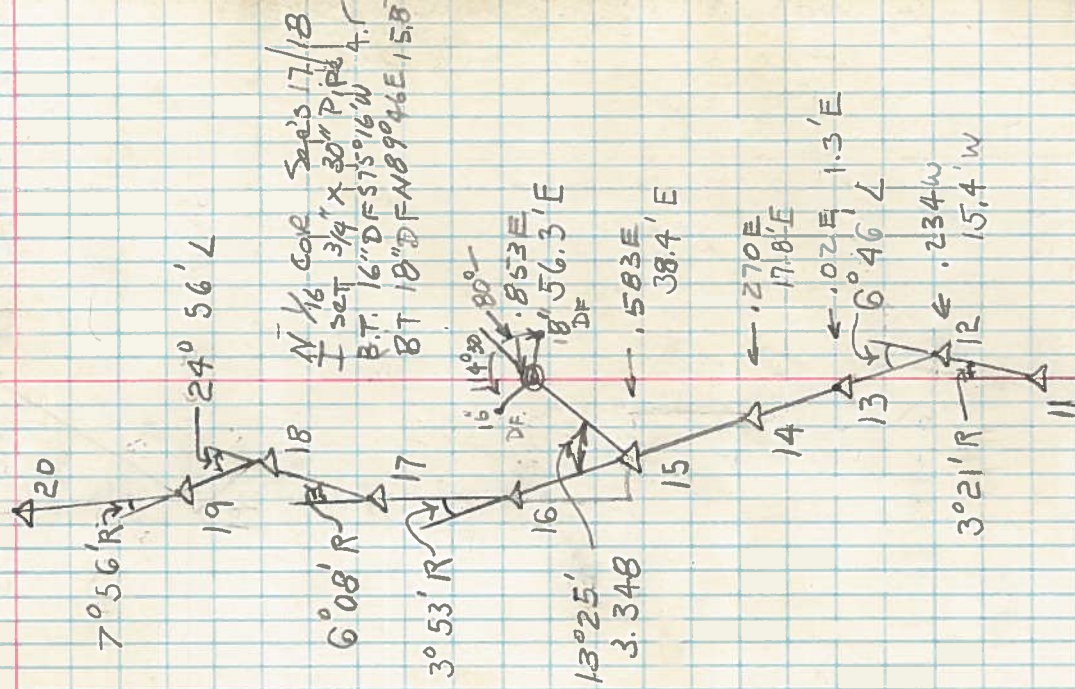 20
7°56'R
24° 56' L
19
18
N 1/16 COR Sec's 17/18
I set 3/4" x 30" Pipe
B.T. 16" DF S75°16'W 4.1
BT 18" DF N89°46E 15.8'
6°08' R
17
3°53' R
16
16"
DF.
114°30
80°
.853E
56.3'E
18"
DF
13°25'
3.348
15
.583E
38.4' E
14
.270E
17.8'E
13
.02E 1.3'E
6°46' L
12
.234W
15.4'W
3°21' R
11